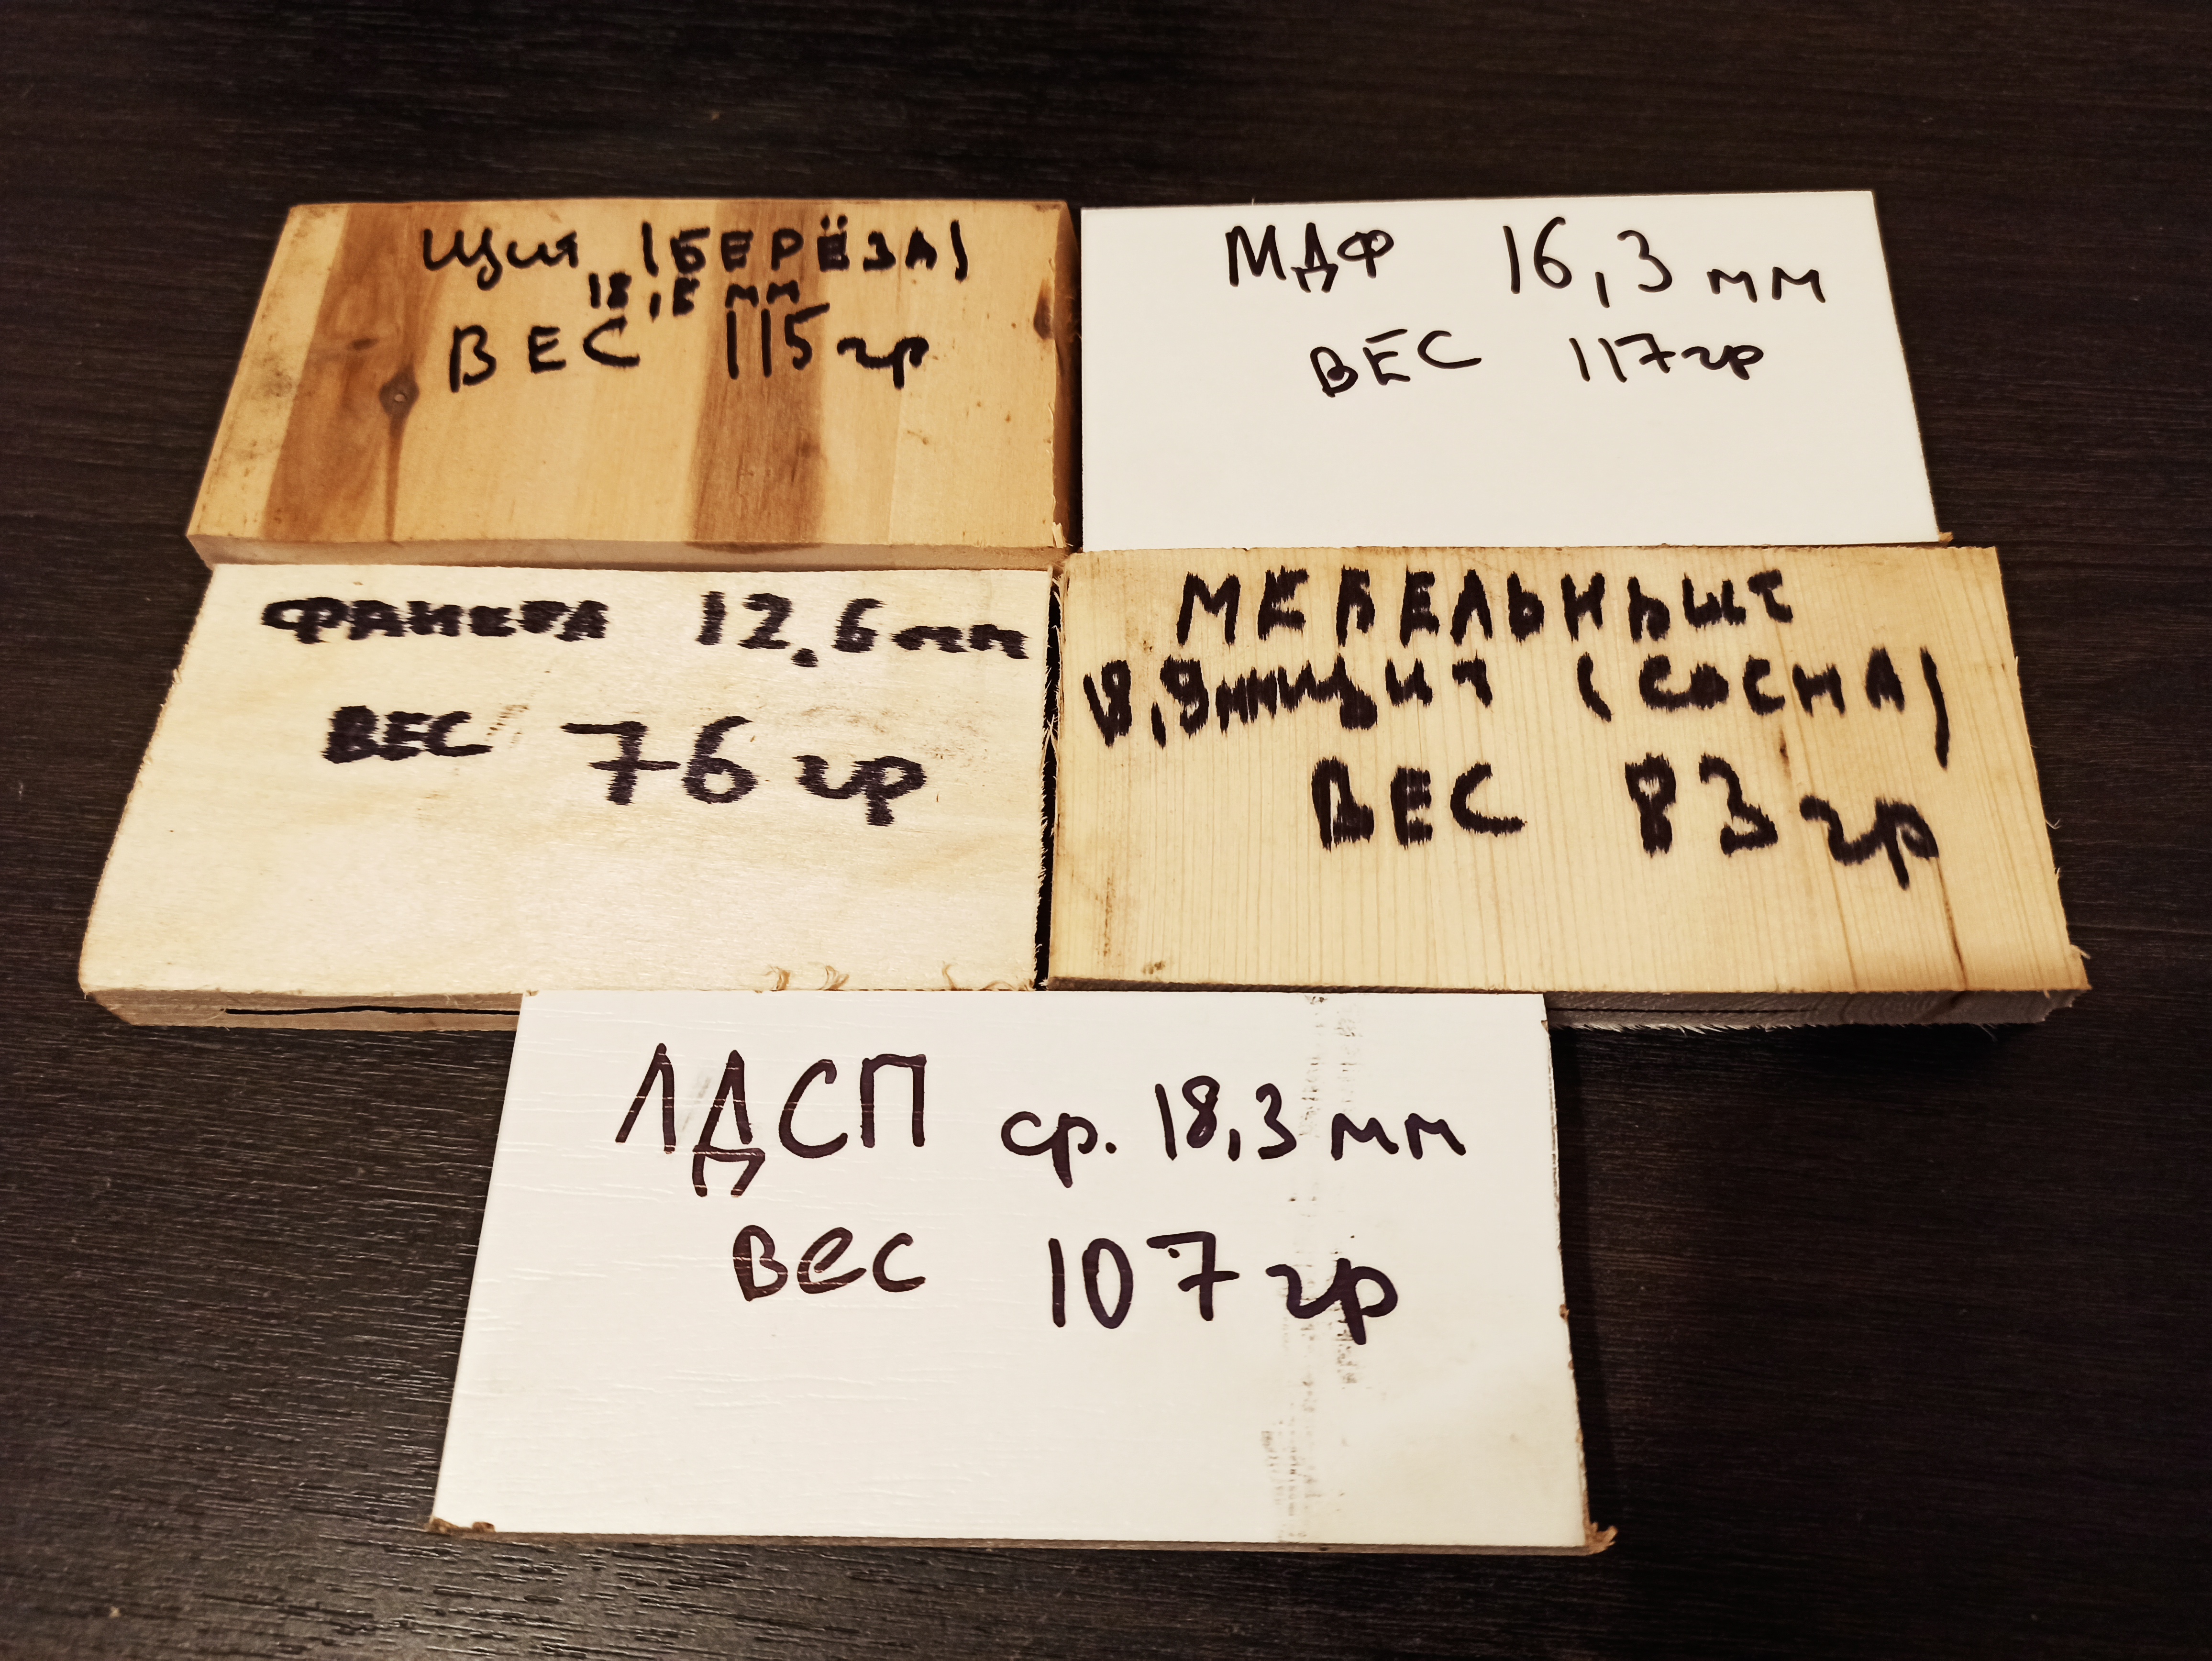 Щит (БЕРЁЗА)
мм
ВЕС 115 гр
МДФ 16,3 мм
ВЕС 117 гр
ФАНЕРА 12,6 мм
ВЕС 76 гр
МЕБЕЛЬНЫЙ
18,9мм щит (СОСНА)
ВЕС 83 гр
ЛДСП ср. 18,3 мм
Вес 107 гр